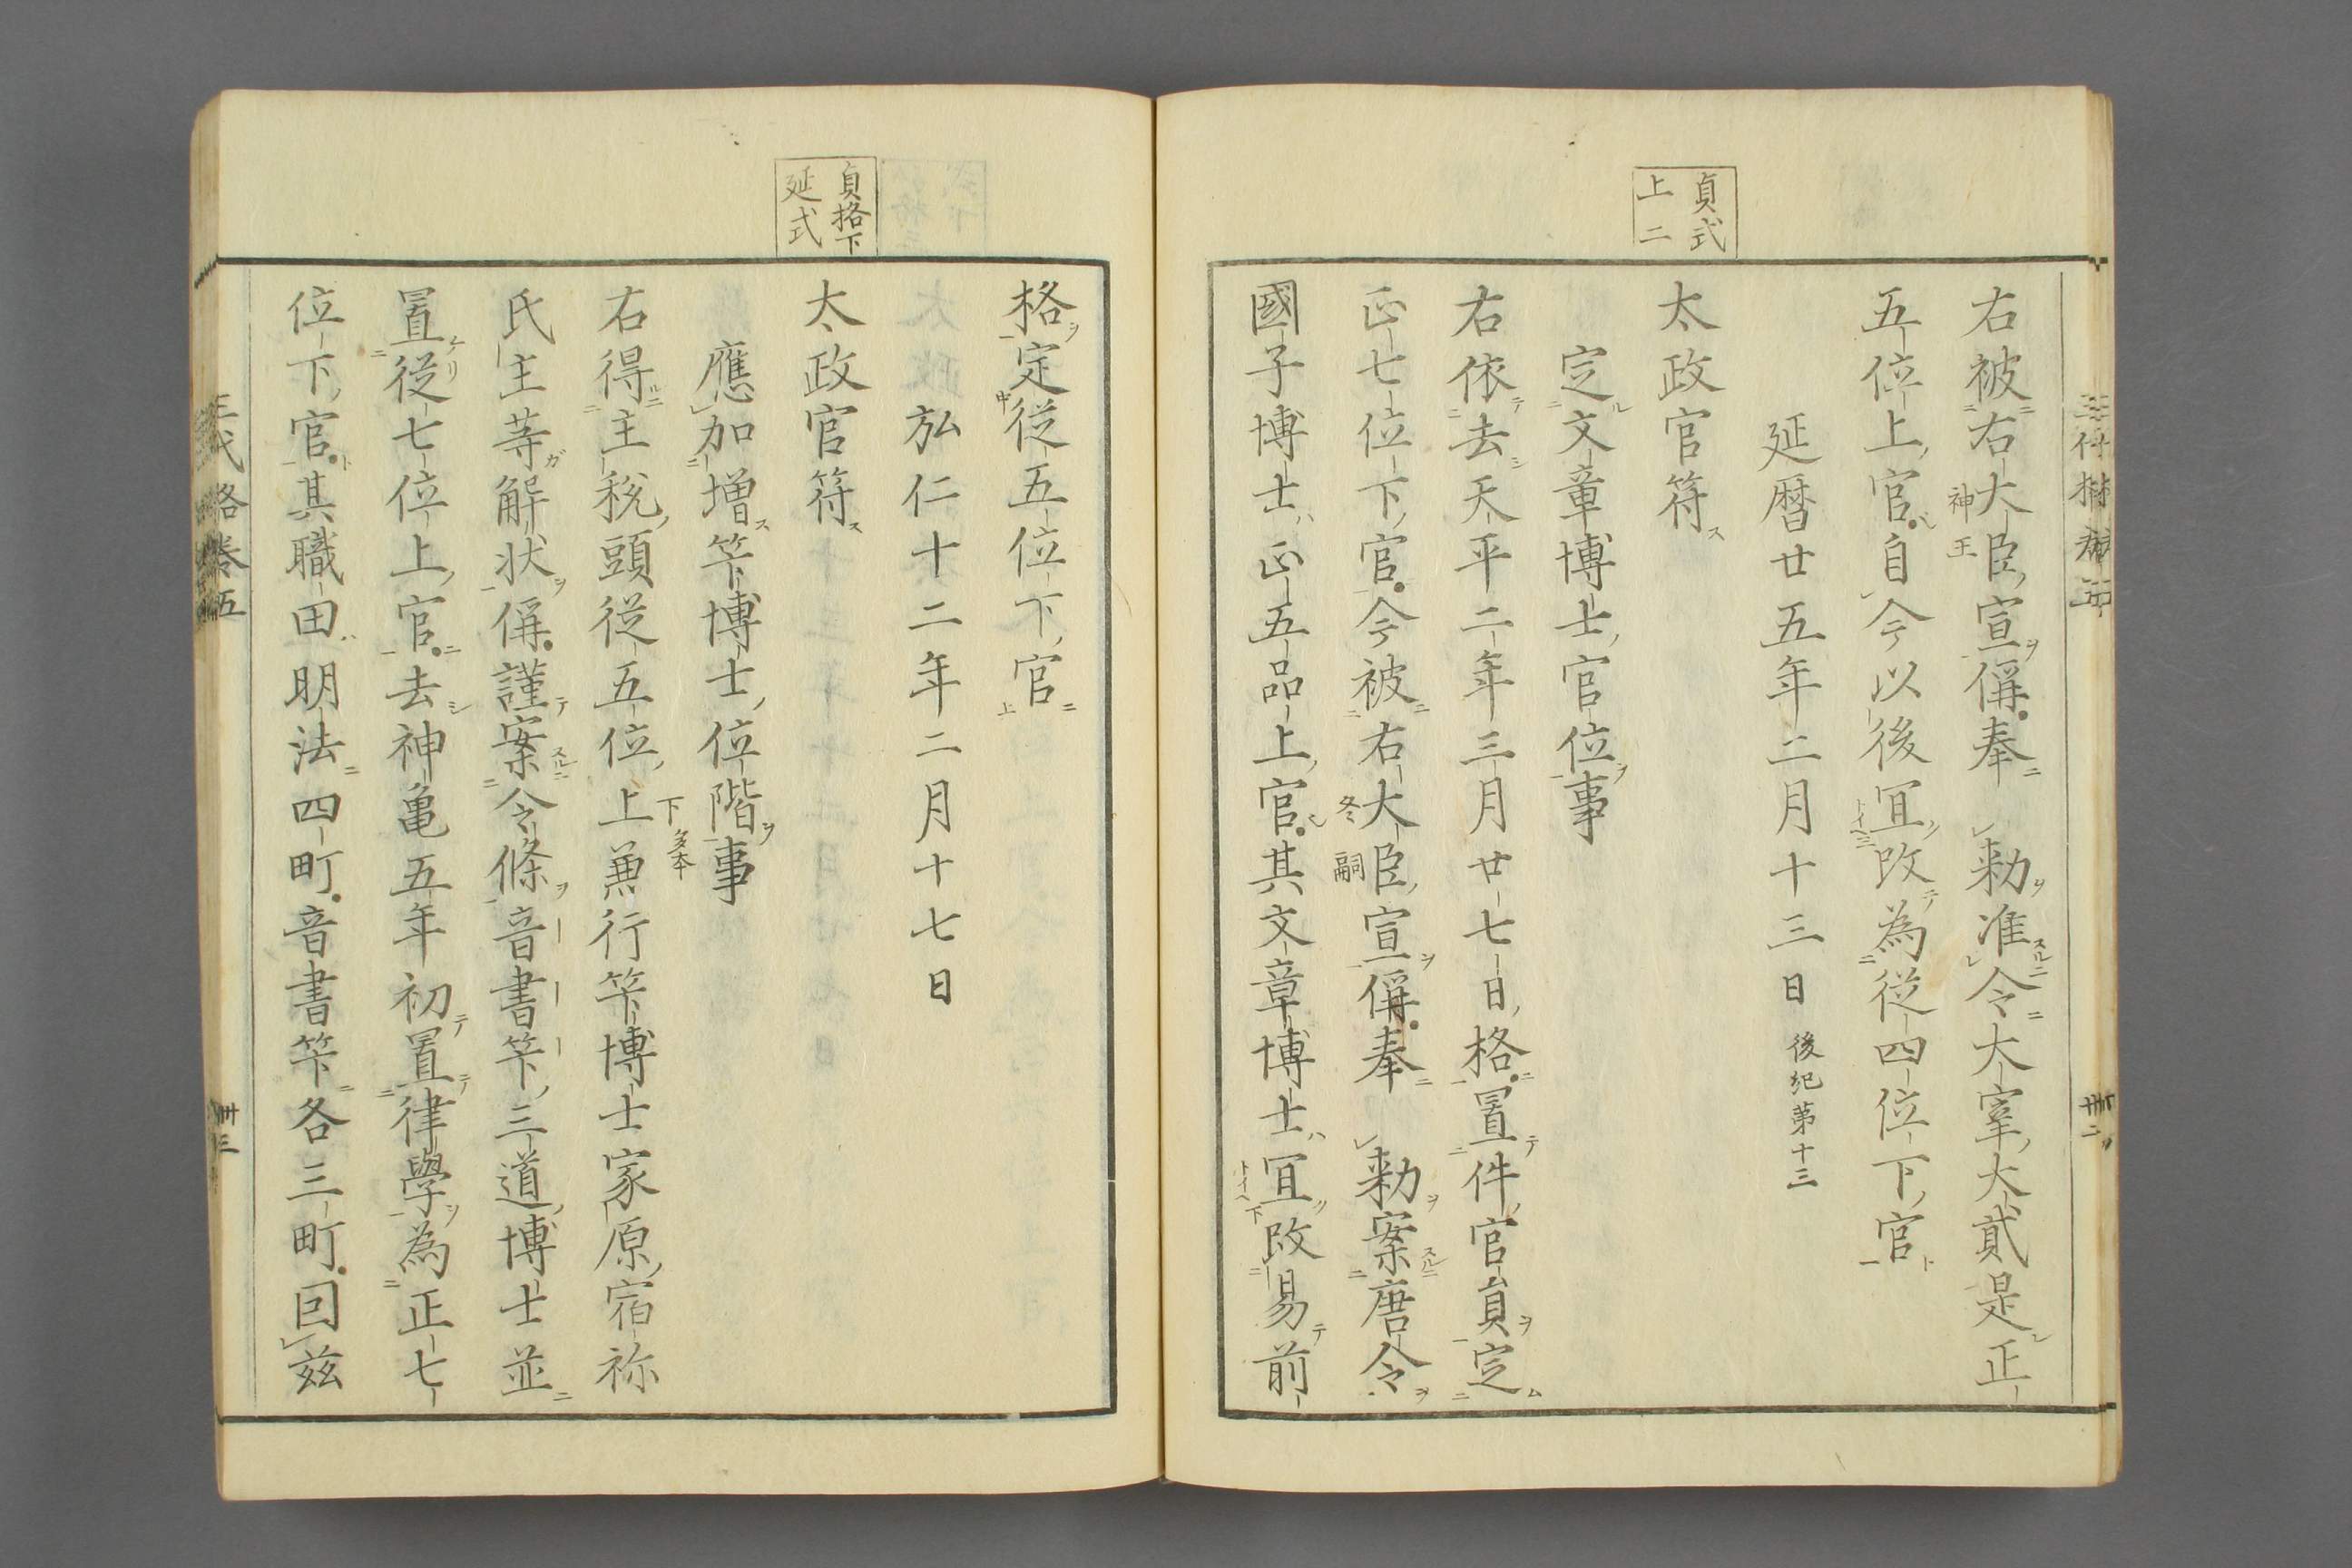 貞式
上二
右被右大臣宣偁奉 勅准令大宰大貳是正
神王
五位上官自今以後冝改為從四位下官
延暦廿五年二月十三日 後紀第十三
太政官符
定文章博士官位事
右依去天平二年三月廿七日格置件官員定
正七位下官今被右大臣宣偁奉 勅案唐令
冬嗣
國子博士正五品上官其文章博士冝改易前
貞格下
延式
格定從五位下官
弘仁十二年二月十七日
太政官符
應加増筭博士位階事
右得主稅頭從五位上兼行筭博士家原宿祢
下多本
氏主等解状偁謹案令條音書筭三道博士並
置從七位上官去神亀五年初置律學為正七
位下官其職田明法四町音書筭各三町因茲
三代格卷五
卅三